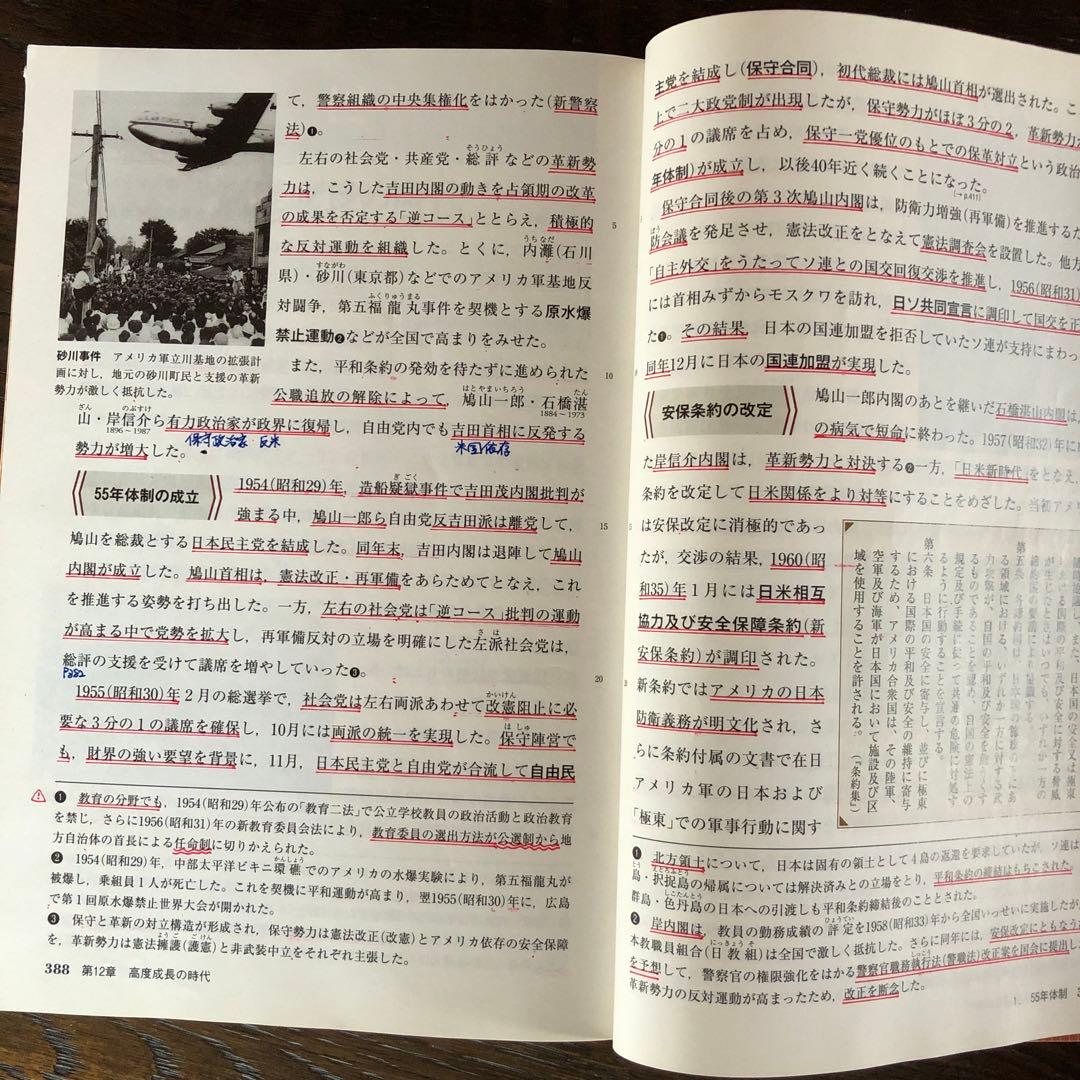 て，警察組織の中央集権化をはかった(新警察
法)❶。
左右の社会党・共産党・総評などの革新勢
力は，こうした吉田内閣の動きを占領期の改革
の成果を否定する「逆コース」ととらえ，積極的
な反対運動を組織した。とくに，内灘(石川
県)・砂川(東京都)などでのアメリカ軍基地反
対闘争，第五福龍丸事件を契機とする原水爆
禁止運動❷などが全国で高まりをみせた。
また，平和条約の発効を待たずに進められた
公職追放の解除によって，鳩山一郎・石橋湛
山・岸信介ら有力政治家が政界に復帰し，自由党内でも吉田首相に反発する
勢力が増大した。
1884〜1973
1896〜1987
保守政治家 反米
米国依存
砂川事件 アメリカ軍立川基地の拡張計
画に対し，地元の砂川町民と支援の革新
勢力が激しく抵抗した。
55年体制の成立
1954(昭和29)年，造船疑獄事件で吉田茂内閣批判が
強まる中，鳩山一郎ら自由党反吉田派は離党して，
鳩山を総裁とする日本民主党を結成した。同年末，吉田内閣は退陣して鳩山
内閣が成立した。鳩山首相は，憲法改正・再軍備をあらためてとなえ，これ
を推進する姿勢を打ち出した。一方，左右の社会党は「逆コース」批判の運動
が高まる中で党勢を拡大し，再軍備反対の立場を明確にした左派社会党は，
総評の支援を受けて議席を増やしていった❸。
P382
1955(昭和30)年２月の総選挙で，社会党は左右両派あわせて改憲阻止に必
要な３分の１の議席を確保し，10月には両派の統一を実現した。保守陣営で
も，財界の強い要望を背景に，11月，日本民主党と自由党が合流して自由民
5
10
15
20
❶ 教育の分野でも，1954(昭和29)年公布の「教育二法」で公立学校教員の政治活動と政治教育
を禁じ，さらに1956(昭和31)年の新教育委員会法により，教育委員の選出方法が公選制から地
方自治体の首長による任命制に切りかえられた。
❷ 1954(昭和29)年，中部太平洋ビキニ環礁でのアメリカの水爆実験により，第五福龍丸が
被爆し，乗組員１人が死亡した。これを契機に平和運動が高まり，翌1955(昭和30)年に，広島
で第１回原水爆禁止世界大会が開かれた。
❸ 保守と革新の対立構造が形成され，保守勢力は憲法改正(改憲)とアメリカ依存の安全保障
を，革新勢力は憲法擁護(護憲)と非武装中立をそれぞれ主張した。
388 第12章 高度成長の時代
主党を結成し(保守合同)，初代総裁には鳩山首相が選出された。こ
上で二大政党制が出現したが，保守勢力がほぼ３分の２，革新勢力が
分の１の議席を占め，保守一党優位のもとでの保革対立という政治
年体制)が成立し，以後40年近く続くことになった。
[→p.411]
保守合同後の第３次鳩山内閣は，防衛力増強(再軍備)を推進するた
防会議を発足させ，憲法改正をとなえて憲法調査会を設置した。他方
「自主外交」をうたってソ連との国交回復交渉を推進し，1956(昭和31)
には首相みずからモスクワを訪れ，日ソ共同宣言に調印して国交を正
た❶。その結果，日本の国連加盟を拒否していたソ連が支持にまわっ
同年12月に日本の国連加盟が実現した。
安保条約の改定
鳩山一郎内閣のあとを継いだ石橋湛山内閣は，
の病気で短命に終わった。1957(昭和32)年に
た岸信介内閣は，革新勢力と対決する❷一方，「日米新時代」をとなえ，
条約を改定して日米関係をより対等にすることをめざした。当初アメ
は安保改定に消極的であっ
たが，交渉の結果，1960(昭
和35)年１月には日米相互
協力及び安全保障条約(新
安保条約)が調印された。
新条約ではアメリカの日本
防衛義務が明文化され，さ
らに条約付属の文書で在日
アメリカ軍の日本および
「極東」での軍事行動に関す
第六条 日本国の安全に寄与し，並びに極東
における国際の平和及び安全の維持に寄与
するため，アメリカ合衆国は，その陸軍，
空軍及び海軍が日本国において施設及び区
域を使用することを許される。（『条約集』）
❶ 北方領土について，日本は固有の領土として４島の返還を要求していたが，ソ連は
島・択捉島の帰属については解決済みとの立場をとり，平和条約の締結はもちこされた。
群島・色丹島の日本への引渡しも平和条約締結後のこととされた。
❷ 岸内閣は，教員の勤務成績の評定を1958(昭和33)年から全国いっせいに実施したが，
本教職員組合(日教組)は全国で激しく抵抗した。さらに同年には，安保改定にともなう
を予想して，警察官の権限強化をはかる警察官職務執行法(警職法)改正案を国会に提出し
革新勢力の反対運動が高まったため，改正を断念した。
1. 55年体制